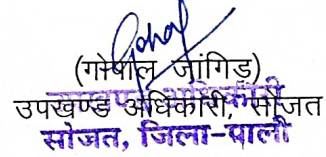 (गोपाल जांगिड़)
उपखण्ड अधिकारी, सोजत
उपखण्ड अधिकारी
सोजत, जिला-पाली